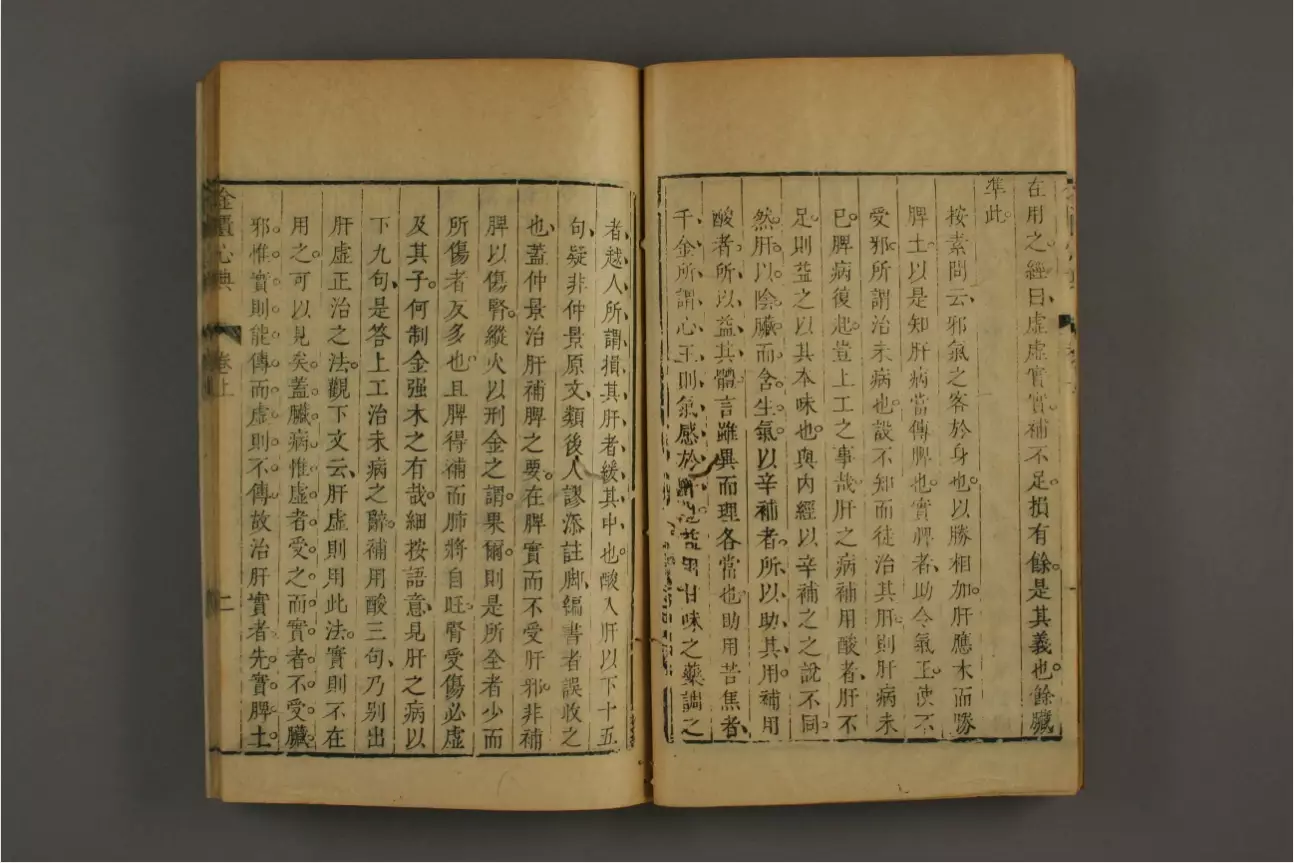 在用之。經曰虛虛實實補不足。損有餘。是其義也。餘臟
準此。
按素問云、邪氣之客於身也。以勝相加。肝應木而勝
脾土、以是知肝病當傳脾也。實脾者、助令氣王。使不
受邪。所謂治未病也。設不知而徒治其肝。則肝病未
已。脾病復起。豈上工之事哉。肝之病補用酸者、肝不
足。則益之以其本味也。與內經以辛補之之說不同。
然肝以陰臟而含生氣。以辛補者、所以助其用。補用
酸者、所以益其體。言雖異而理各當也。助用苦焦者、
千金所謂心王則氣感於肝也。益用甘味之藥調之
者、越人所謂損其肝者、緩其中也。酸入肝以下十五
句、疑非仲景原文、類後人謬添註脚、編書者誤收之
也、蓋仲景治肝補脾之要。在脾實而不受肝邪。非補
脾以傷腎。縱火以刑金之謂。果爾。則是所全者少而
所傷者反多也。且脾得補而肺將自旺。腎受傷必虛
及其子。何制金强木之有哉。細按語意、見肝之病以
下九句、是答上工治未病之辭。補用酸三句、乃別出
肝虛正治之法。觀下文云、肝虛則用此法。實則不在
用之。可以見矣。蓋臟病惟虛者受之。而實者不受。臟
邪惟實則能傳。而虛則不傳。故治肝實者。先實脾土。
金匱心典
卷上
二